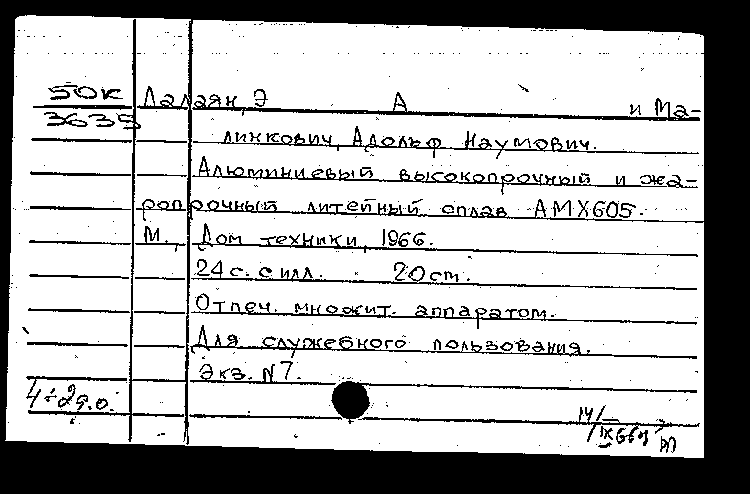 50К Лалаян, Э А и Ма-
3635
линкович, Адольф Наумович.
Алюминиевый высокопрочный и жа-
ропрочный литейный сплав АМХ605.
М., Дом техники, 1966.
24 с. с илл. 20 см.
Отпеч. множит. аппаратом.
Для служебного пользования.
Экз. N 7.
4+2д.о.
14/